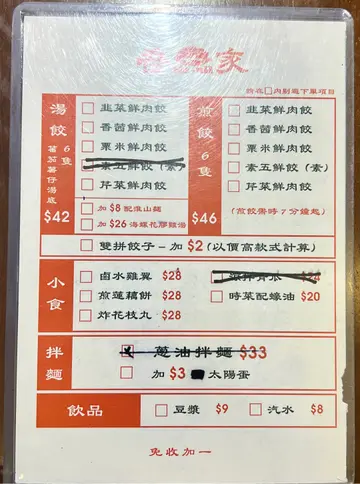 家
請在□內剔選下單項目
湯餃 6隻 $42
韭菜鮮肉餃
香茜鮮肉餃
粟米鮮肉餃
素五鮮餃 (素)
芹菜鮮肉餃
加 $8 配淮山麵
加 $26 海螺花膠雞湯
煎餃 6隻 $46
韭菜鮮肉餃
香茜鮮肉餃
粟米鮮肉餃
素五鮮餃 (素)
芹菜鮮肉餃
(煎餃需時 7 分鐘起)
雙拼餃子 - 加 $2 (以價高款式計算)
小食
鹵水雞翼 $28
$24
煎蓮藕餅 $28
時菜配蠔油 $20
炸花枝丸 $28
拌麵
蔥油拌麵 $33
加 $3 太陽蛋
飲品
豆漿 $9
汽水 $8
免收加一